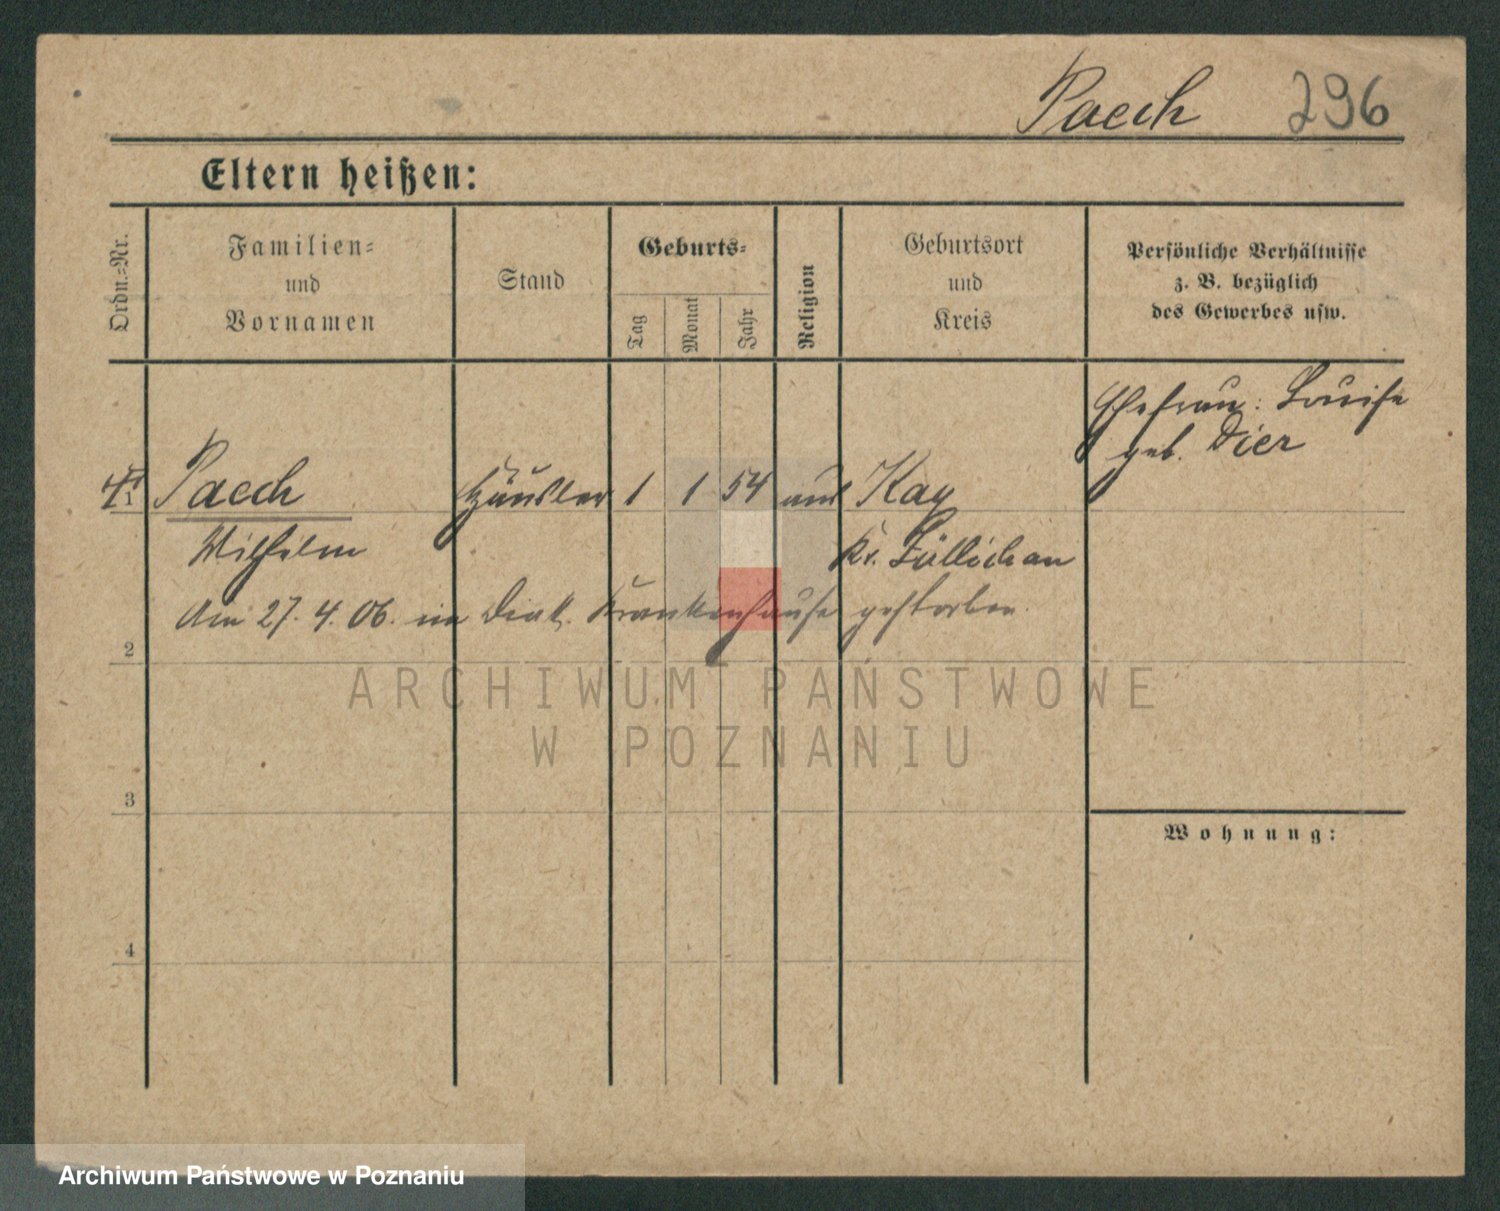 Paech 296
Eltern heißen:
Ordn.=Nr.
Familien=
und
Vornamen
Stand
Geburts=
Tag
Monat
Jahr
Religion
Geburtsort
und
Kreis
Persönliche Verhältnisse
z. B. bezüglich
des Gewerbes usw.
Ehefrau: Louise
geb. Dier
1 Paech Häusler 1 1 54 aus Kay
Wilhelm Kr. Züllichau
Am 27. 4. 06. im Diak. Krankenhause gestorben.
2
3
4
Wohnung:
ARCHIWUM PAŃSTWOWE
W POZNANIU
Archiwum Państwowe w Poznaniu